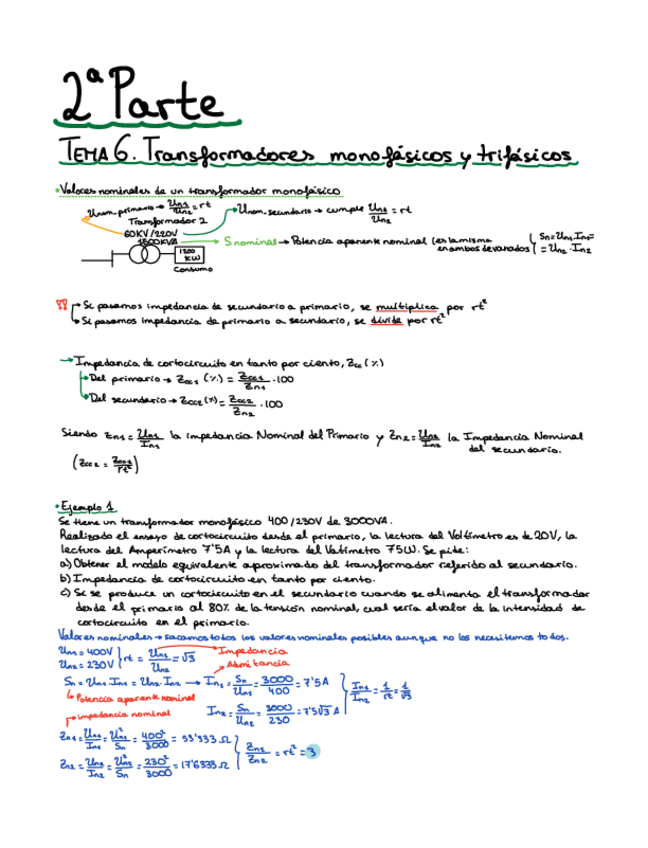 2ª Parte
TEMA 6. Transformadores monofásicos y trifásicos
• Valores nominales de un transformador monofásico
Unom. primario → Un1/Un2 = rt
Unom. secundario → cumple Un1/Un2 = rt
Transformador 2
60KV/220V
1500KVA
S nominal → Potencia aparente nominal (es la misma en ambos devanados) { Sn = Un1 . In1 = = Un2 . In2
1200 KW
Consumo
!! → Si pasamos impedancia de secundario a primario, se multiplica por rt²
→ Si pasamos impedancia de primario a secundario, se divide por rt²
→ Impedancia de cortocircuito en tanto por ciento, Zcc (%)
→ Del primario → Zcc1 (%) = Zcc1/Zn1 . 100
→ Del secundario → Zcc2 (%) = Zcc2/Zn2 . 100
Siendo Zn1 = Un1/In1 la impedancia Nominal del Primario y Zn2 = Un2/In2 la Impedancia Nominal
del secundario.
(Zcc2 = Zcc1/rt²)
• Ejemplo 1
Se tiene un transformador monofásico 400/230V de 3000VA.
Realizado el ensayo de cortocircuito desde el primario, la lectura del Voltímetro es de 20V, la
lectura del Amperímetro 7'5A y la lectura del Vatímetro 75W. Se pide:
a) Obtener el modelo equivalente aproximado del transformador referido al secundario.
b) Impedancia de cortocircuito en tanto por ciento.
c) Si se produce un cortocircuito en el secundario cuando se alimenta el transformador
desde el primario al 80% de la tensión nominal, cual sería el valor de la intensidad de
cortocircuito en el primario.
Valores nominales → sacamos todos los valores nominales posibles aunque no los necesitemos todos.
Un1 = 400V
Un2 = 230V } rt = Un1/Un2 = √3
Impedancia
Admitancia
Sn = Un1 . In1 = Un2 . In2 → In1 = Sn/Un1 = 3000/400 = 7'5A
Potencia aparente nominal
In2 = Sn/Un2 = 3000/230 = 7'5√3 A } In1/In2 = 1/rt = 1/√3
Impedancia nominal
Zn1 = Un1/In1 = Un1²/Sn = 400²/3000 = 53'333 Ω
Zn2 = Un2/In2 = Un2²/Sn = 230²/3000 = 17'6333 Ω } Zn1/Zn2 = rt² = 3